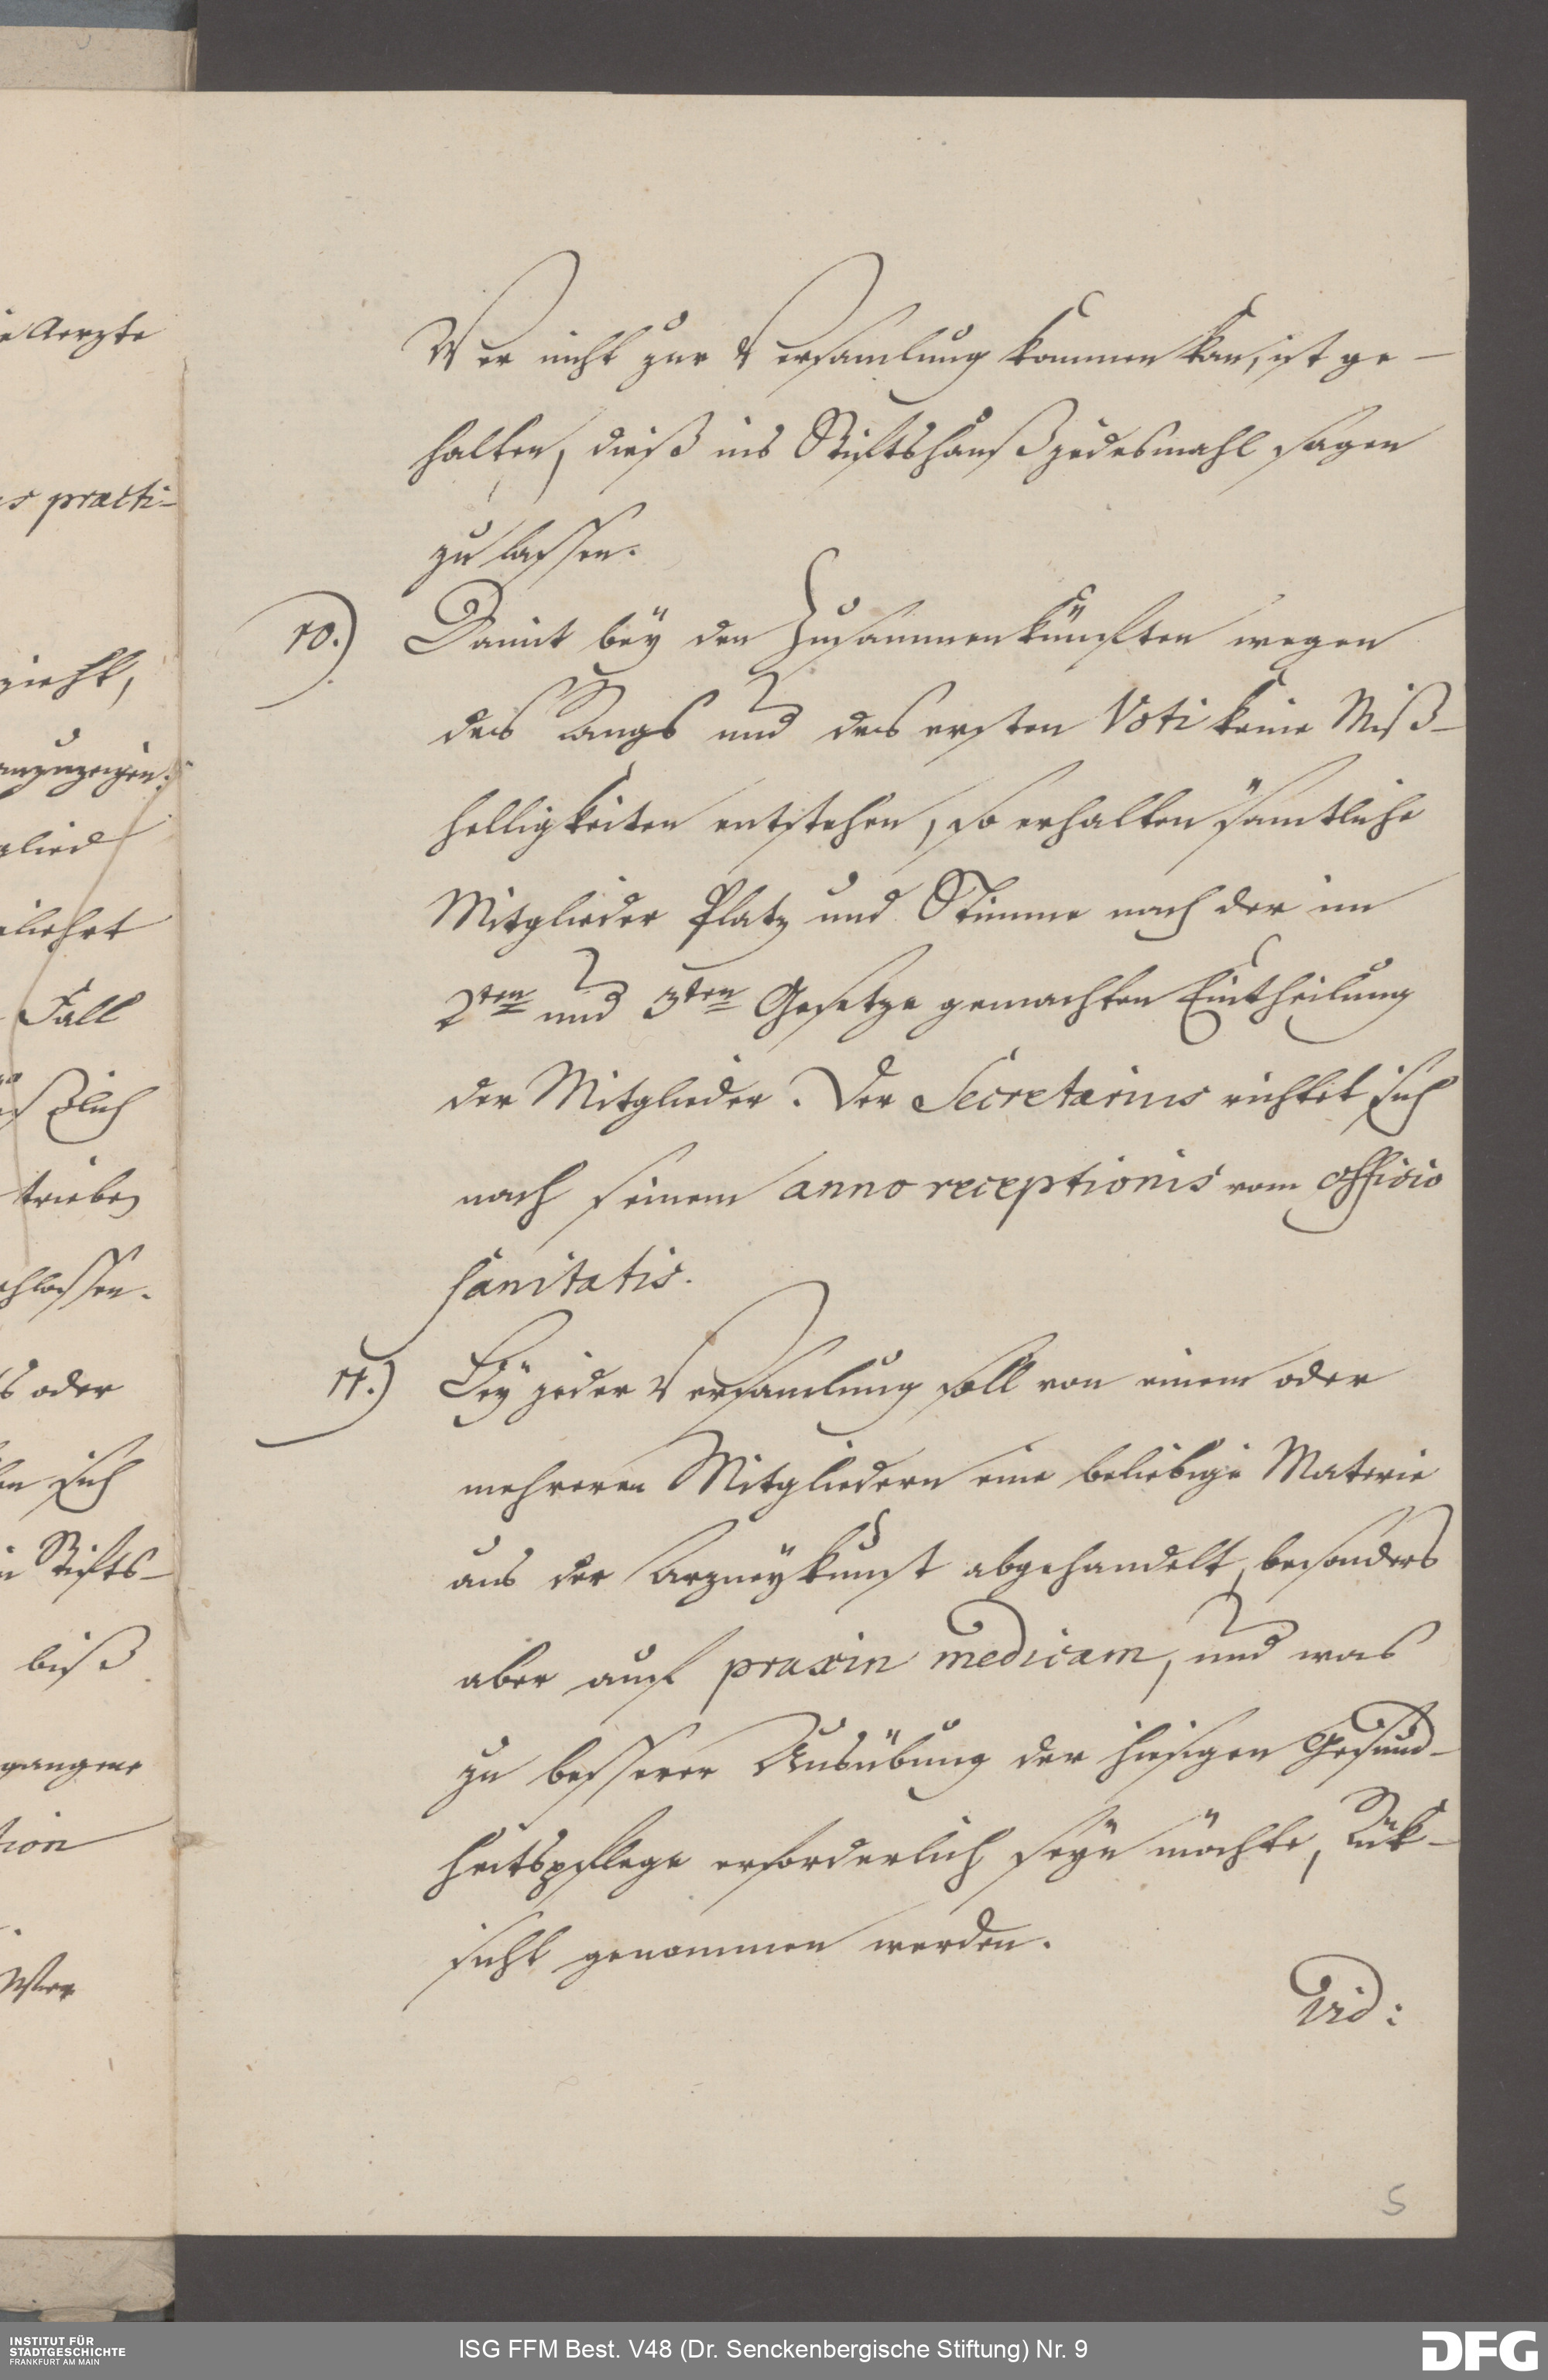 e Aerzte
s practi-
zieht,
anzuzeigen.
glied
liehrt
Fall
ßlich
trieben
chlossen.
s oder
en sich
n Stifts-
biß
gangene
tion
Wer
Wer nicht zur Versamlung kommen kan, ist ge-
halten, dieß ins Stiftshauß jedesmahl sagen
zu lassen.
10.) Damit bëy den Zusammenkünften wegen
des Rangs und des ersten Voti keine Miß-
helligkeiten entstehen, so erhalten sämtliche
Mitglieder Platz und Stimme nach der im
2ten und 3ten Gesetze gemachten Eintheilung
der Mitglieder. Der Secretarius richtet sich
nach seinem anno receptionis vom officio
sanitatis.
11.) Beÿ jeder Versamlung soll von einem oder
mehreren Mitgliedern eine beliebige Materie
aus der Arzneÿkunst abgehandelt, besonders
aber auf praxin medicam, und was
zu besserer Ausübung der hiesigen Gesund-
heitspflege erforderlich seÿn möchte, Rük-
sicht genommen werden.
Vid:
5
INSTITUT FÜR
STADTGESCHICHTE
FRANKFURT AM MAIN
ISG FFM Best. V48 (Dr. Senckenbergische Stiftung) Nr. 9
DFG